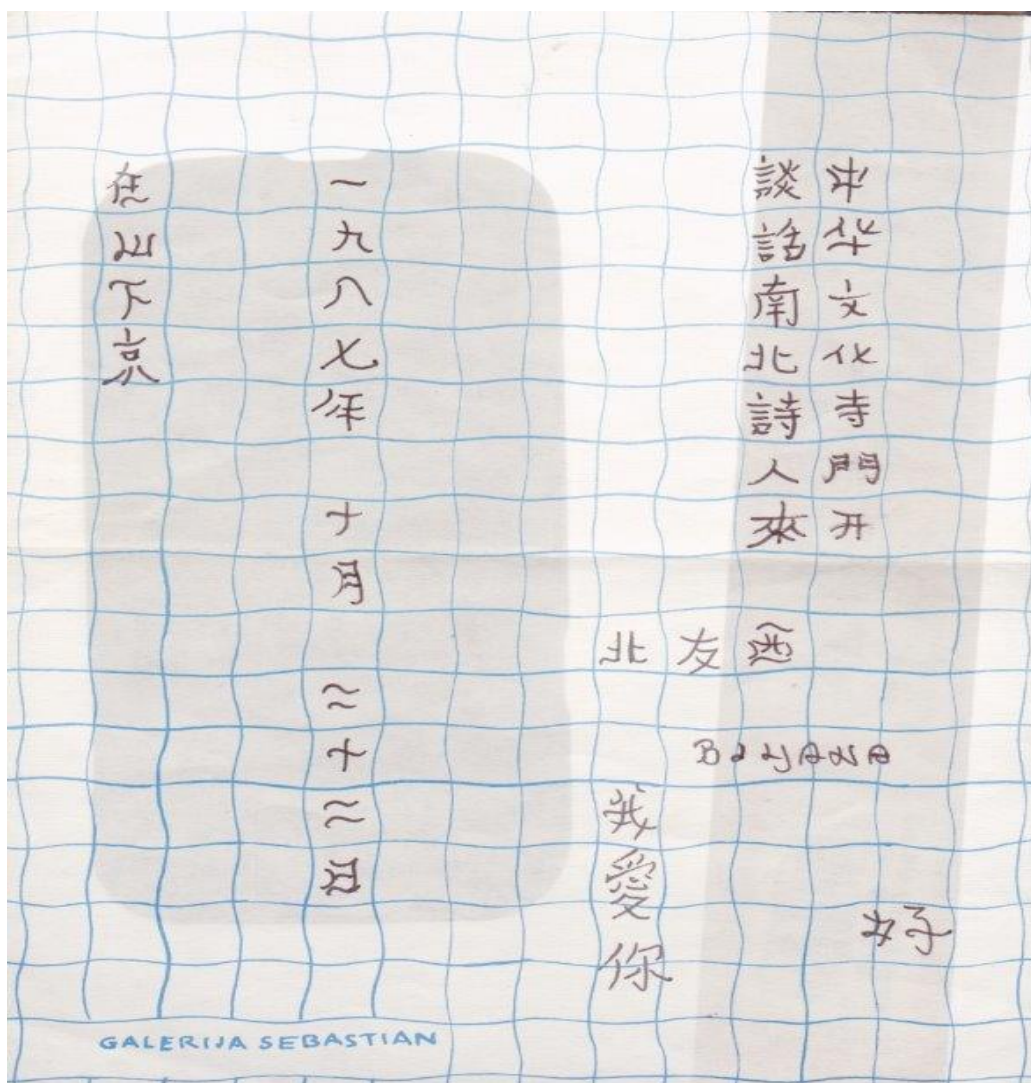 中华文化寺門开
談話南北詩人來
北友西
BIYANA
好
我愛你
一九八七年 十月 二十二日
在山下京
GALERIJA SEBASTIAN